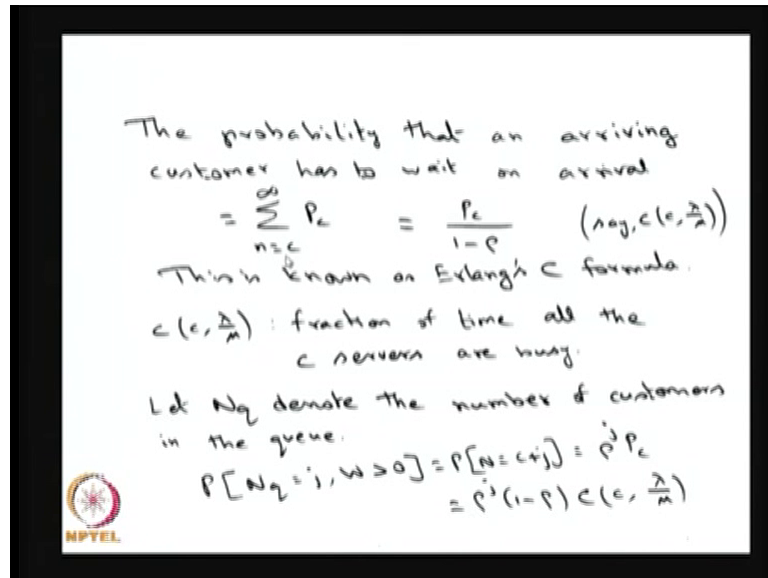 The probability that an arriving
customer has to wait on arrival
= ∞ Σ n=c P_c = P_c / 1-ρ (say, c(c, λ/μ))
This is known as Erlang's C formula.
c(c, λ/μ) : fraction of time all the
c servers are busy.
Let Nq denote the number of customers
in the queue.
P[Nq = j, W > 0] = P[N = c+j] = ρ^j P_c
= ρ^j (1-ρ) C(c, λ/μ)
NPTEL